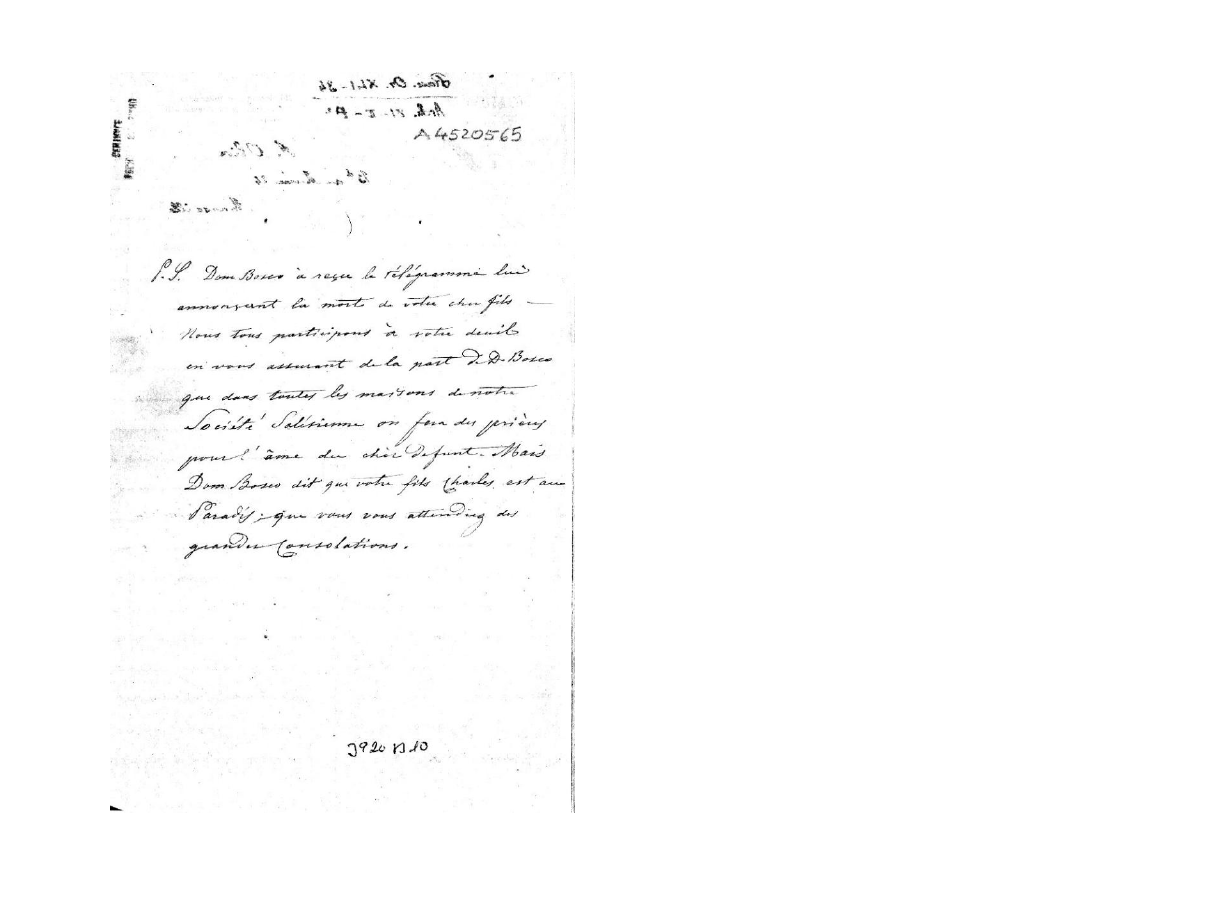 A4520565
P.S. Dom Bosco à reçu le télégramme lui
annonçant la mort de votre cher fils —
Nous tous participons à votre deuil
en vous assurant de la part de D. Bosco
que dans toutes les maisons de notre
Société Salésienne on fera des prières
pour l'âme du cher defunt. Mais
Dom Bosco dit que votre fils Charles est au
Paradis; que vous vous attendiez des
grandes Consolations.